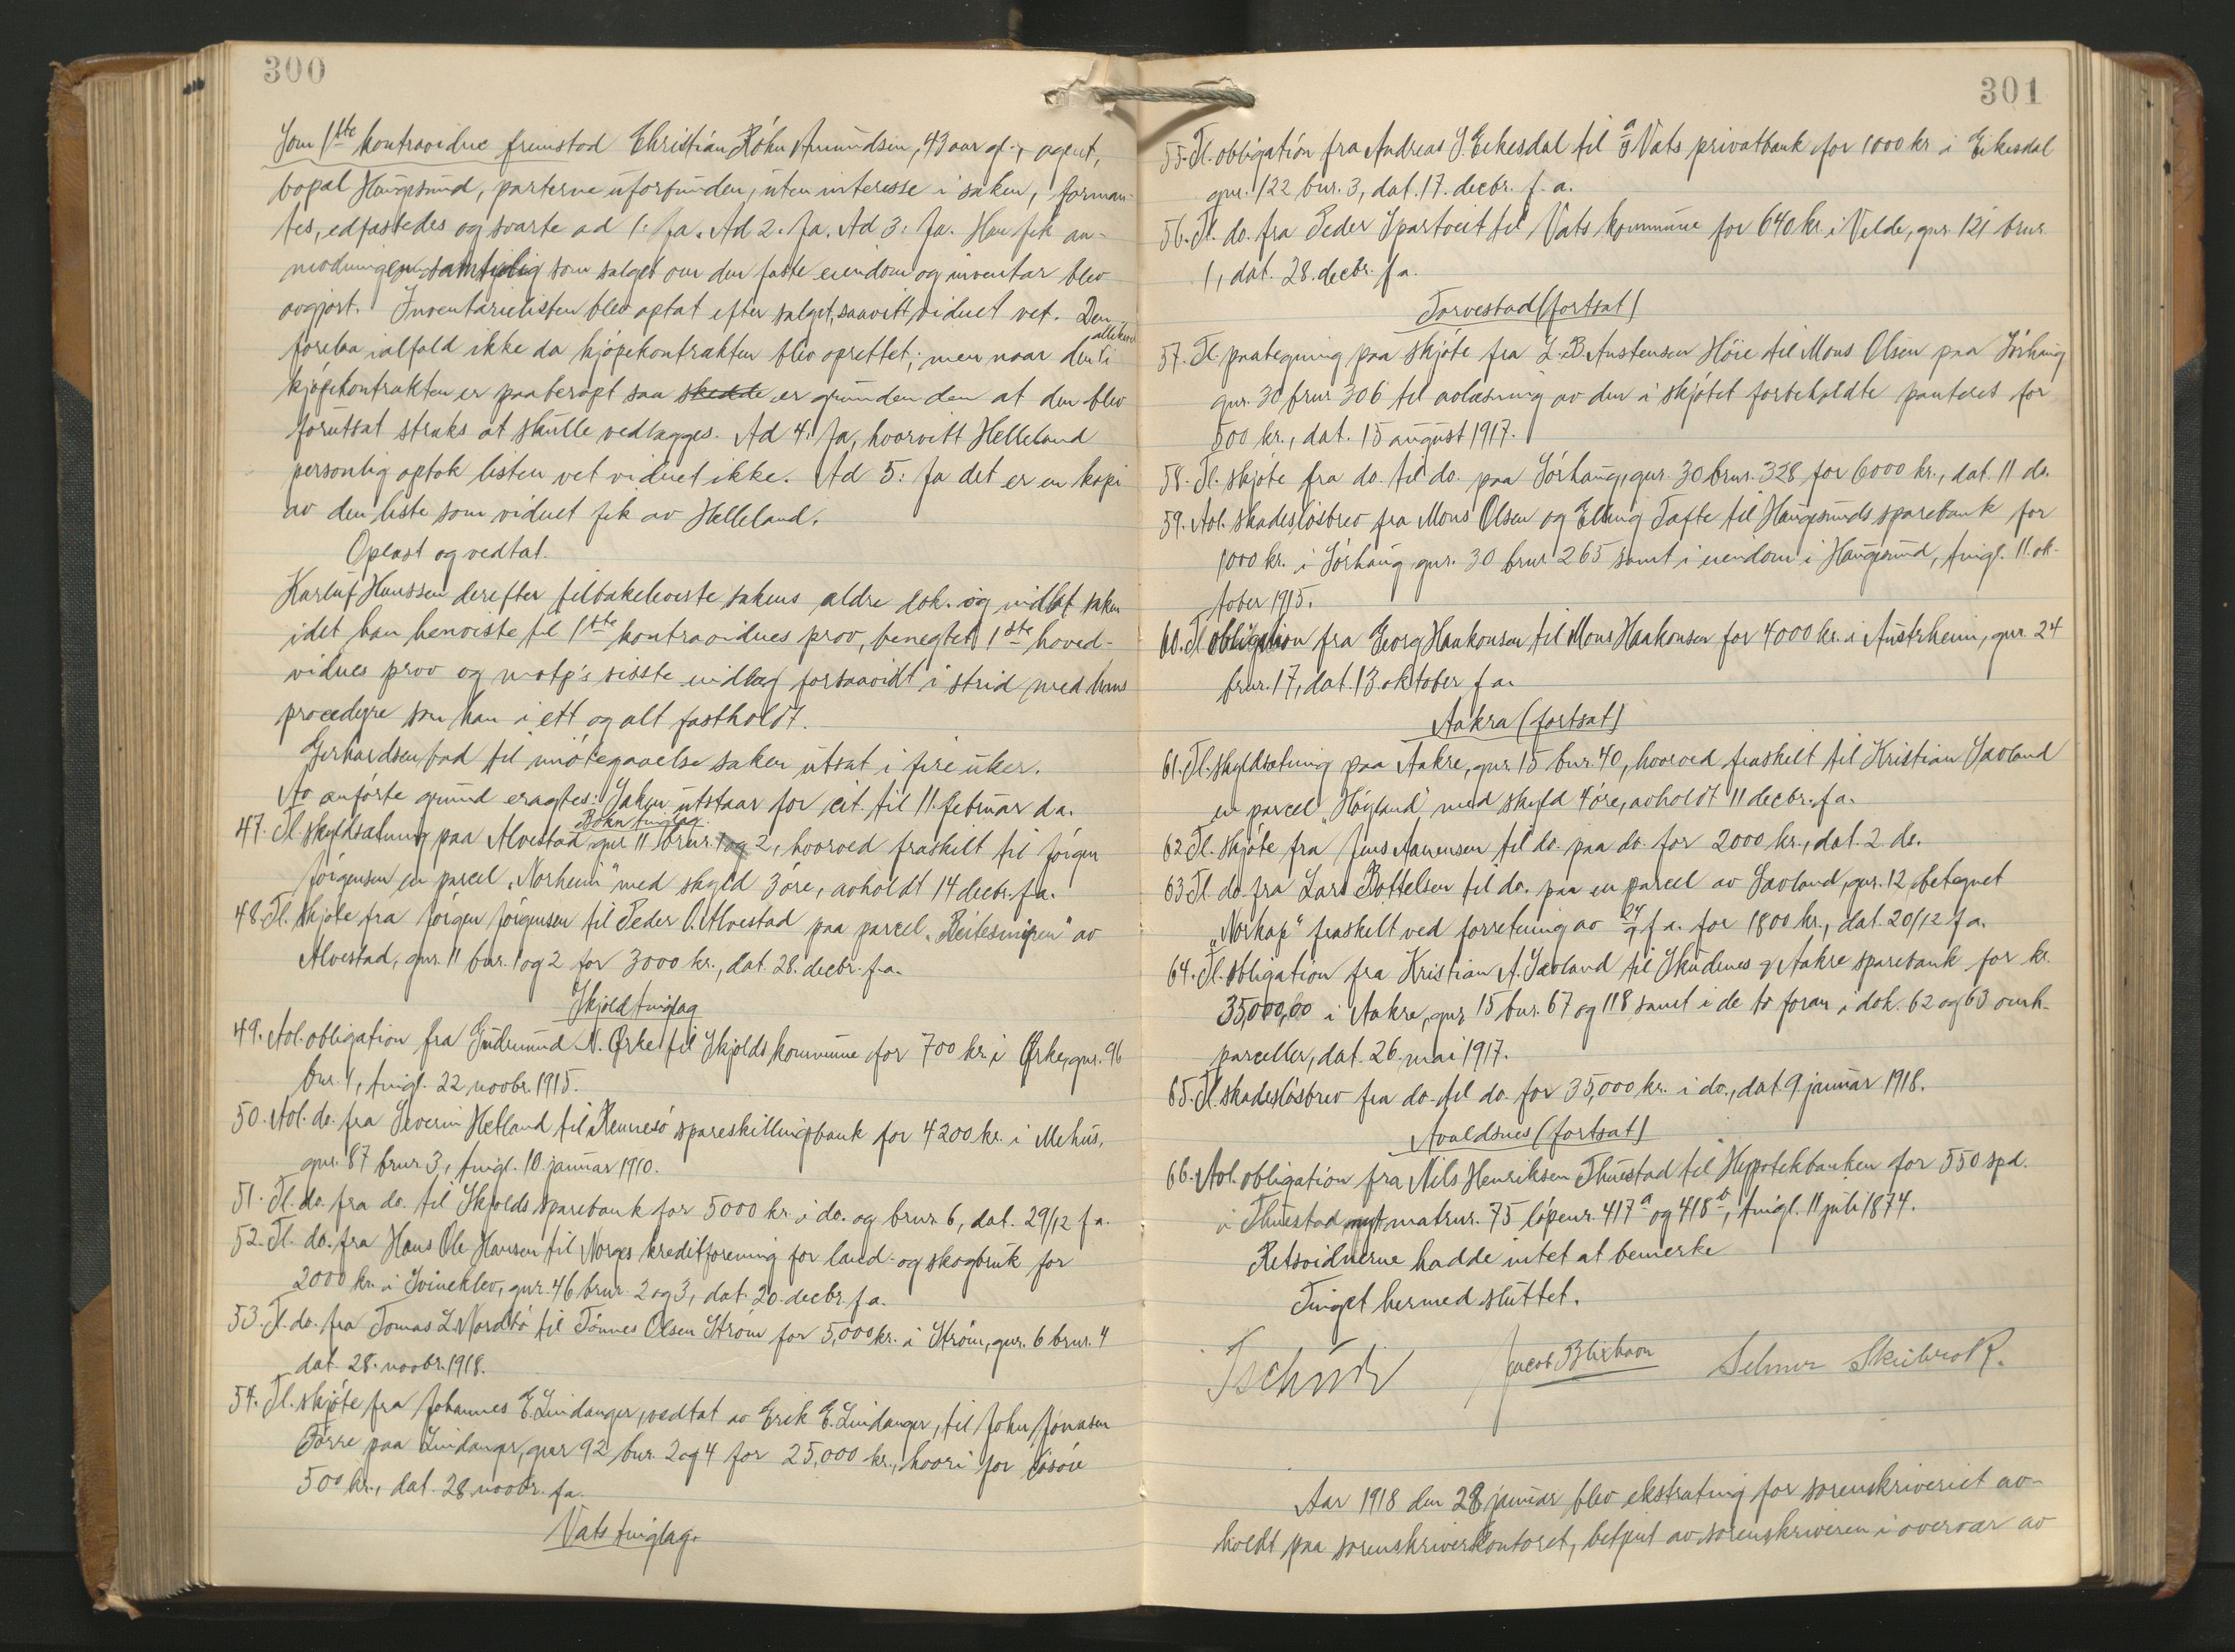 300
Som 1ste kontravidne fremstod Christian Røhn Amundsen, 43 aar gl., agent,
bopæl Haugesund, parterne uforbunden, uten interesse i saken, forman-
tes, edfæstedes og svarte ad 1: Ja. Ad 2. Ja. Ad 3: Ja. Han fik an-
modningen samtidig som salget om den faste eiendom og inventar blev
avgjort. Inventarielisten blev optat efter salget, saavitt vidnet vet. Den
forelaa ialfald ikke da kjøpekontrakten blev oprettet; men naar den allikevel i
kjøpekontrakten er paaberopt saa skedde er grunden den at den blev
forutsat straks at skulle vedlægges. Ad 4: Ja, hvorvitt Helleland
personlig optok listen vet vidnet ikke. Ad 5: Ja det er en kopi
av den liste som vidnet fik av Helleland.
Oplæst og vedtat.
Karluf Hanssen derefter tilbakeleverte sakens ældre dok. og indlot saken
idet han henviste til 1ste kontravidnes prov, benegtet 1ste hoved-
vidnes prov og motp's sisste indlæg forsaavidt i strid med hans
procedyre som han i ett og alt fastholdt.
Gerhardsen bad til imøtegaaelse saken utsat i fire uker.
Av anførte grund eragtes: Saken utstaar for cit. til 11. februar d.a.
Bokn tinglag.
47. Tl. skyldsætning paa Alvestad gnr 11 brnr. 1 og 2, hvorved fraskilt til Jørgen
Jørgensen en parcel "Norheim" med skyld 3 øre, avholdt 14 decbr. f.a.
48. Tl. skjøte fra Jørgen Jørgensen til Peder O. Alvestad paa parcel "Reitesmyren" av
Alvestad, gnr. 11 bnr. 1 og 2 for 3000 kr., dat. 28. decbr. f.a.
Skjold tinglag
49. Avl. obligation fra Gudmund N. Ørke til Skjolds kommune for 700 kr. i Ørke, gnr. 96
bnr. 4, tingl. 22 novbr. 1915.
50. Avl. do. fra Severin Hetland til Rennesø spareskillingsbank for 4200 kr. i Mehus,
gnr. 87 brnr 3, tingl. 10. januar 1910.
51. Tl. do. fra do. til Skjolds sparebank for 5000 kr. i do. og brnr. 6, dat. 29/12 f.a.
52. Tl. do. fra Hans Ole Hansen til Norges kreditforening for land- og skogbruk for
2000 kr. i Svineklev, gnr. 46 brnr. 2 og 3, dat. 20. decbr. f.a.
53. Tl. do. fra Tomas L. Nordbø til Tønnes Olsen Strøm for 5,000 kr. i Strøm, gnr. 6 brnr. 4
dat. 28. novbr. 1918.
54. Tl. skjøte fra Johannes E. Lindanger, vedtat av Erik E. Lindanger, til John Jonasen
Tørre paa Lindanger, gnr 92 bnr. 2 og 4 for 25,000 kr., hvori for løsøre
500 kr., dat. 28 novbr. f.a.
Vats tinglag.
301
55. Tl. obligation fra Andreas S. Eikesdal til a/s Vats privatbank for 1000 kr. i Eikesdal
gnr. 122 bnr. 3, dat. 17. decbr. f.a.
56. Tl. do. fra Peder Spartveit til Vats kommune for 640 kr. i Velde, gnr. 121 brnr.
1, dat. 28. decbr. f.a.
Torvestad (fortsat)
57. Tl. paategning paa skjøte fra L. B. Austensen Høie til Mons Olsen paa Sørhaug
gnr. 30 brnr 306 til avlæsning av den i skjøtet forbeholdte panteret for
500 kr., dat. 15 august 1917.
58. Tl. skjøte fra do. til do. paa Sørhaug, gnr. 30 brnr. 328 for 6000 kr., dat. 11 do.
59. Avl. skadesløsbrev fra Mons Olsen og Elling Tafte til Haugesunds sparebank for
1000 kr. i Sørhaug gnr. 30 brnr 265 samt i eiendom i Haugesund, tingl. 11. ok-
tober 1915.
60. Tl obligation fra Georg Haakonsen til Mons Haakonsen for 4000 kr. i Austrheim, gnr. 24
brnr. 17, dat. 13. oktober f.a.
Aakra (fortsat)
61. Tl. skyldsætning paa Aakre, gnr. 15 bnr. 40, hvorved fraskilt til Kristian Sævland
en parcel "Høyland" med skyld 4 øre, avholdt 11 decbr. f.a.
62 Tl. skjøte fra Jens Aanensen til do. paa do. for 2000 kr., dat. 2. do.
63 Tl. do. fra Lars Bottelsen til do. paa en parcel av Sævland, gnr. 12 betegnet
"Norkap" fraskilt ved forretning av 24/9 f.a. for 1800 kr., dat. 20/12 f.a.
64. Tl. obligation fra Kristian A. Sævland til Skudenes & Aakre sparebank for kr.
35,000,00 i Aakre, gnr 15 bnr. 67 og 118 samt i de to foran i dok. 62 og 63 omh.
parceller, dat. 26. mai 1917.
65. Tl. skadesløsbrev fra do. til do. for 35,000 kr. i do., dat. 9 januar 1918.
Avaldsnes (fortsat)
66. Avl. obligation fra Nils Henriksen Thuestad til Hypotekbanken for 550 spd.
i Thuestad nyt matrnr. 75 løpenr. 417a og 418b, tingl. 11 juli 1874.
Retsvidnerne hadde intet at bemerke
Tinget hermed sluttet.
Tschudi Jacob Blixhavn Selmer Skeibrok.
Aar 1918 den 28 januar blev ekstrating for sorenskriveriet av-
holdt paa sorenskriverkontoret, betjent av sorenskriveren i overvær av